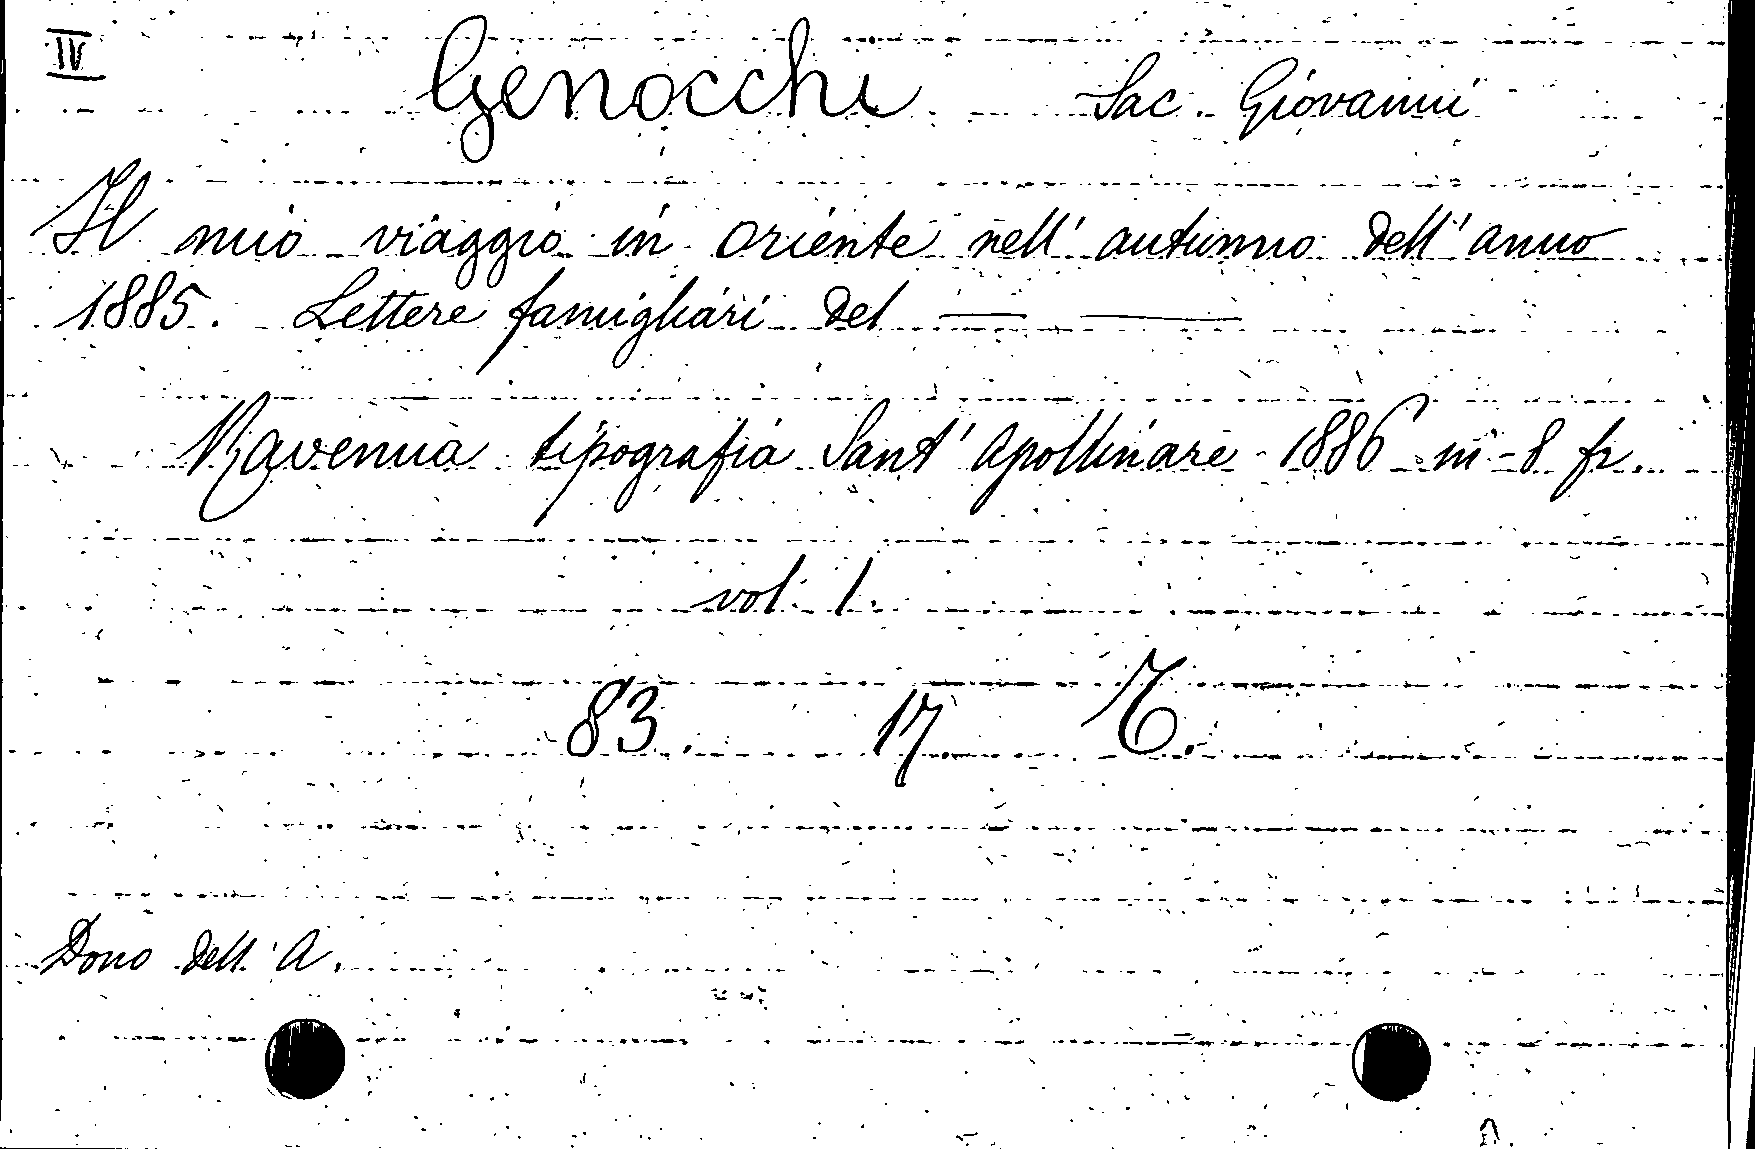 IV
Genocchi Sac. Giovanni
Il mio viaggio in Oriente nell' autunno dell' anno
1885. Lettere famigliari del — —
Ravenna tipografia Sant' Apollinare 1886 in-8 fr.
vol. 1.
83. 17 C.
Dono dell' A.